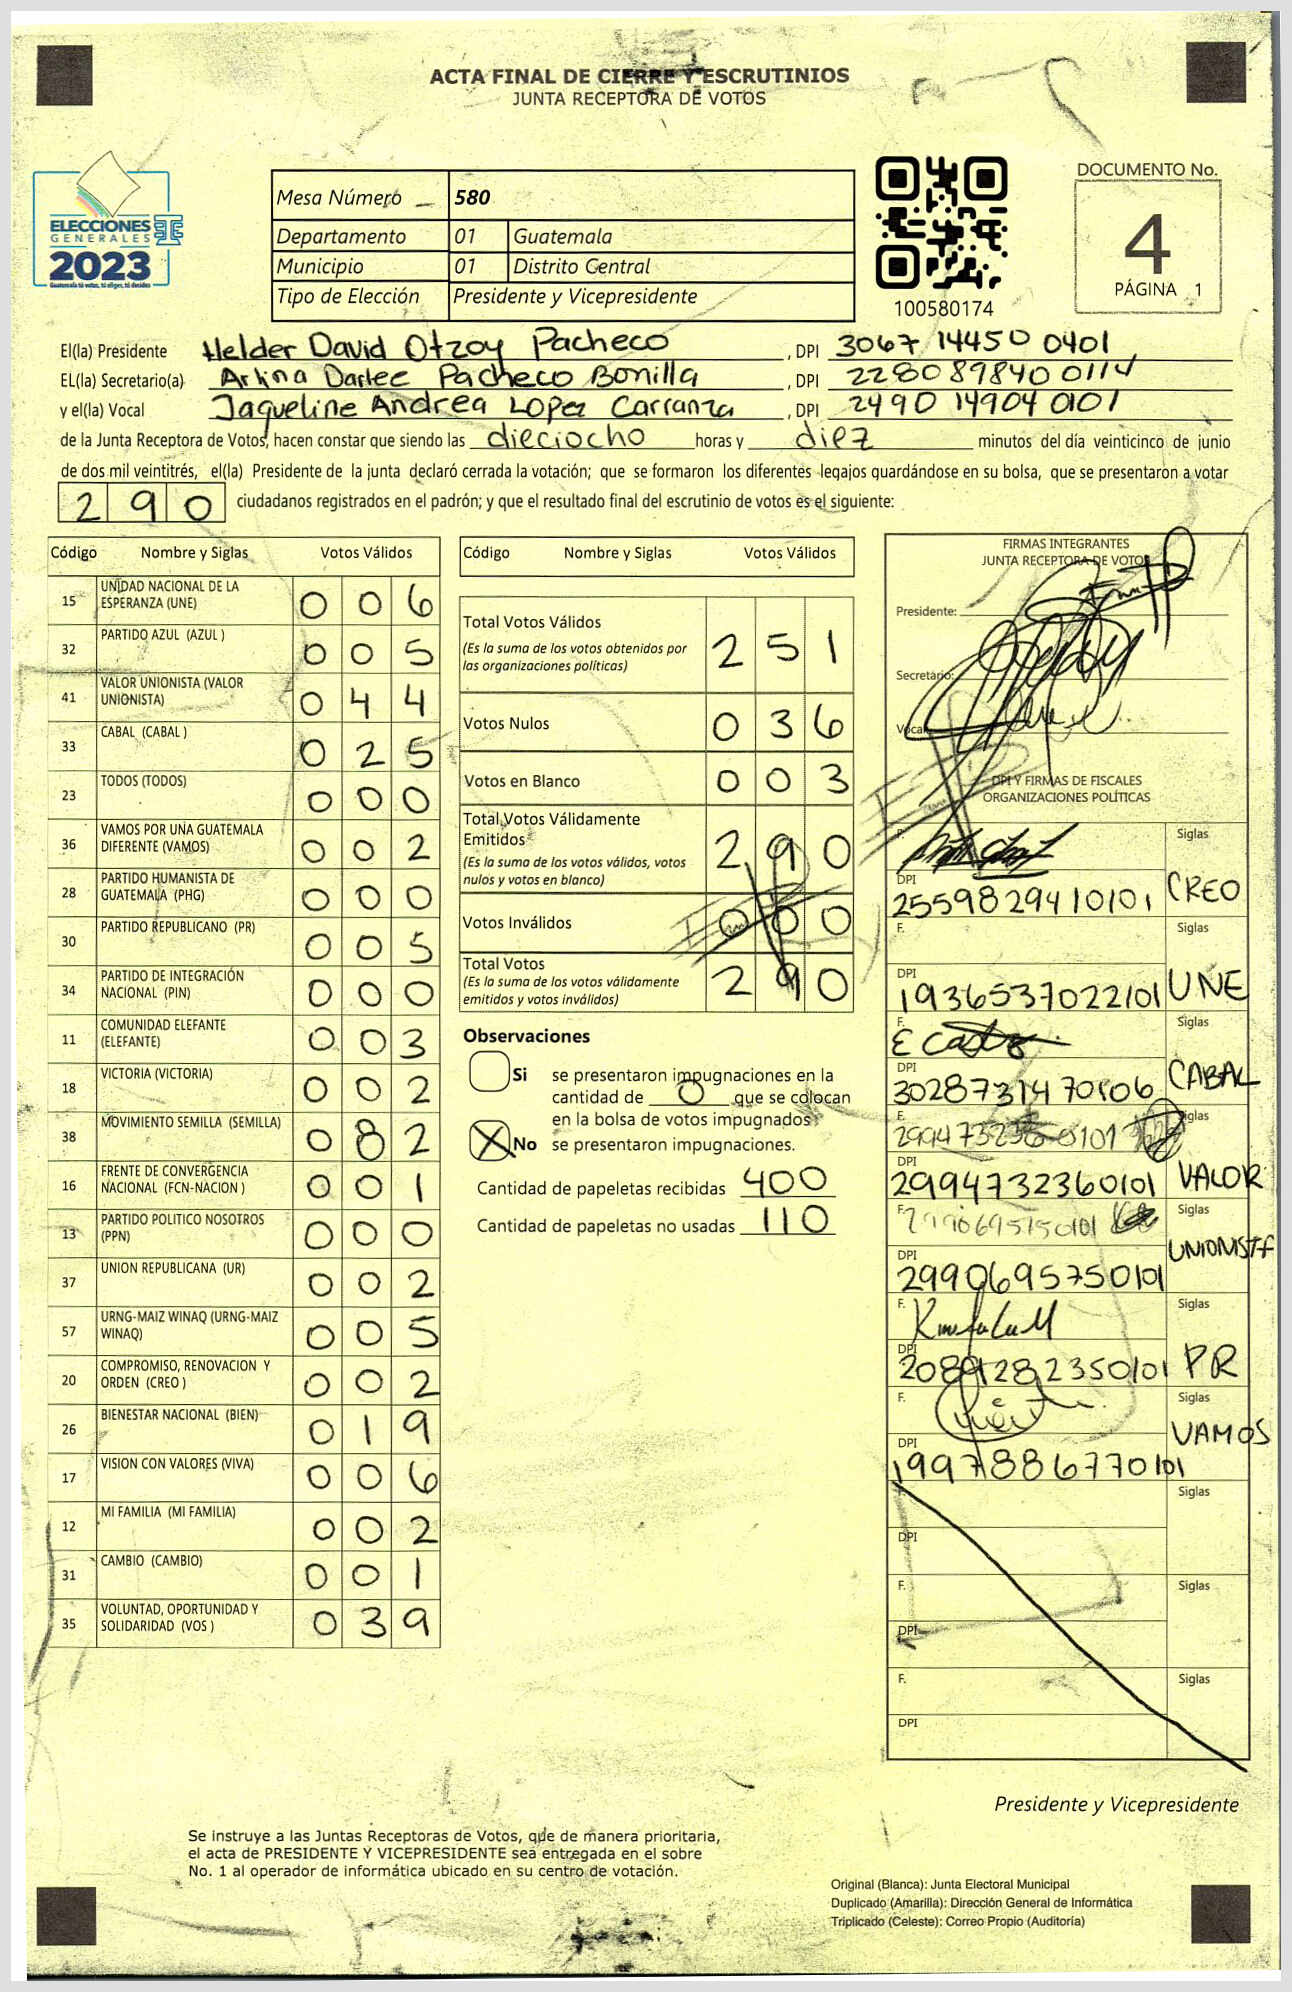 ACTA FINAL DE CIERRE Y ESCRUTINIOS
JUNTA RECEPTORA DE VOTOS
ELECCIONES
GENERALES
2023
Guatemala tú votas, tú eliges, tú decides
Mesa Número 580
Departamento 01 Guatemala
Municipio 01 Distrito Central
Tipo de Elección Presidente y Vicepresidente
100580174
DOCUMENTO No.
4
PÁGINA 1
El(la) Presidente Helder David Otzoy Pacheco , DPI 3067 14450 0401
EL(la) Secretario(a) Darlee Pacheco Bonilla , DPI 2280 89840 0114
y el(la) Vocal Jaqueline Andrea Lopez Carranza , DPI 2490 14904 0101
de la Junta Receptora de Votos, hacen constar que siendo las dieciocho horas y diez minutos del día veinticinco de junio
de dos mil veintitrés, el(la) Presidente de la junta declaró cerrada la votación; que se formaron los diferentes legajos guardándose en su bolsa, que se presentaron a votar
290 ciudadanos registrados en el padrón; y que el resultado final del escrutinio de votos es el siguiente:
Código Nombre y Siglas Votos Válidos
15 UNIDAD NACIONAL DE LA ESPERANZA (UNE) 0 0 6
32 PARTIDO AZUL (AZUL ) 0 0 5
41 VALOR UNIONISTA (VALOR UNIONISTA) 0 4 4
33 CABAL (CABAL ) 0 2 5
23 TODOS (TODOS) 0 0 0
36 VAMOS POR UNA GUATEMALA DIFERENTE (VAMOS) 0 0 2
28 PARTIDO HUMANISTA DE GUATEMALA (PHG) 0 0 0
30 PARTIDO REPUBLICANO (PR) 0 0 5
34 PARTIDO DE INTEGRACIÓN NACIONAL (PIN) 0 0 0
11 COMUNIDAD ELEFANTE (ELEFANTE) 0 0 3
18 VICTORIA (VICTORIA) 0 0 2
38 MOVIMIENTO SEMILLA (SEMILLA) 0 8 2
16 FRENTE DE CONVERGENCIA NACIONAL (FCN-NACION ) 0 0 1
13 PARTIDO POLITICO NOSOTROS (PPN) 0 0 0
37 UNION REPUBLICANA (UR) 0 0 2
57 URNG-MAIZ WINAQ (URNG-MAIZ WINAQ) 0 0 5
20 COMPROMISO, RENOVACION Y ORDEN (CREO ) 0 0 2
26 BIENESTAR NACIONAL (BIEN) 0 1 9
17 VISION CON VALORES (VIVA) 0 0 6
12 MI FAMILIA (MI FAMILIA) 0 0 2
31 CAMBIO (CAMBIO) 0 0 1
35 VOLUNTAD, OPORTUNIDAD Y SOLIDARIDAD (VOS ) 0 3 9
Código Nombre y Siglas Votos Válidos
Total Votos Válidos 2 5 1
(Es la suma de los votos obtenidos por
las organizaciones políticas)
Votos Nulos 0 3 6
Votos en Blanco 0 0 3
Total Votos Válidamente
Emitidos 2 9 0
(Es la suma de los votos válidos, votos
nulos y votos en blanco)
Votos Inválidos 0 0 0
Total Votos 2 9 0
(Es la suma de los votos válidamente
emitidos y votos inválidos)
Observaciones
Si se presentaron impugnaciones en la
cantidad de 0 que se colocan
en la bolsa de votos impugnados
X No se presentaron impugnaciones.
Cantidad de papeletas recibidas 400
Cantidad de papeletas no usadas 110
FIRMAS INTEGRANTES
JUNTA RECEPTORA DE VOTOS
Presidente:
Secretario:
Vocal
DPI Y FIRMAS DE FISCALES
ORGANIZACIONES POLÍTICAS
F. Siglas
DPI 2559829410101 CREO
F. Siglas
DPI 1936537022101 UNE
F. Siglas
DPI 3028731470106 CABAL
F. Siglas
DPI 2994732360101 VALOR
F. 2990695750101 Siglas
DPI 2990695750101 UNIONISTA
F. Siglas
DPI 2089282350101 PR
F. Siglas
DPI 1997886770101 VAMOS
F. Siglas
DPI
F. Siglas
DPI
F. Siglas
DPI
Presidente y Vicepresidente
Se instruye a las Juntas Receptoras de Votos, que de manera prioritaria,
el acta de PRESIDENTE Y VICEPRESIDENTE sea entregada en el sobre
No. 1 al operador de informática ubicado en su centro de votación.
Original (Blanca): Junta Electoral Municipal
Duplicado (Amarilla): Dirección General de Informática
Triplicado (Celeste): Correo Propio (Auditoría)